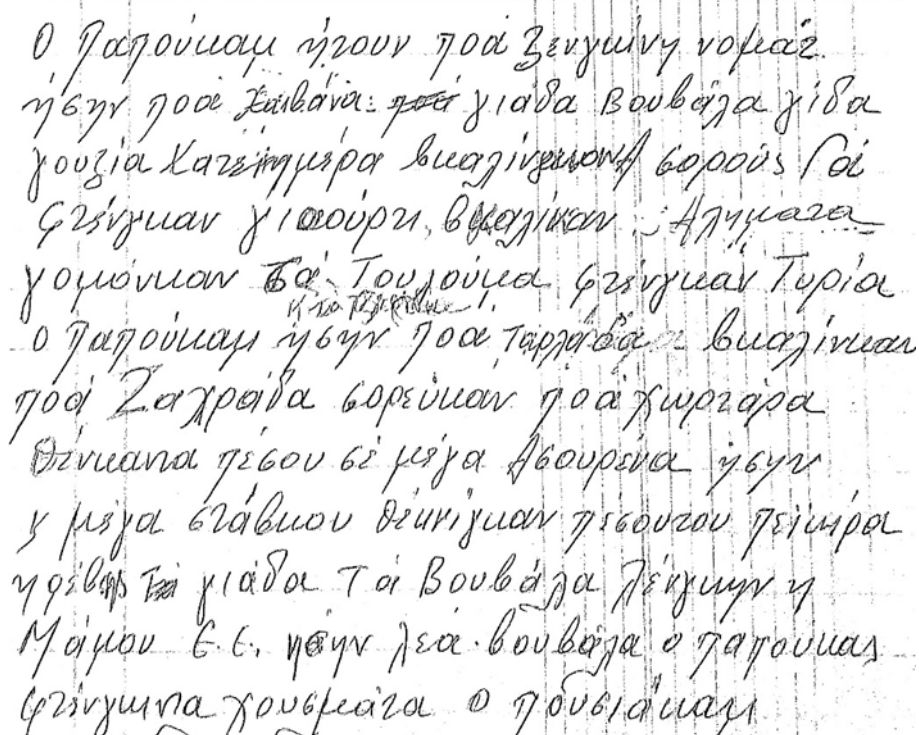 Ο Παπούκαμ ήτουν ποά ξενγκίνη νομάτ
ήσην ποά Χαιβάνα γιάδα Βουβάλα γίδα
γουζία Κατέ ημέρα σορούς Γοί
φτένγκαν γιαούρτι, βκαλίνκαν Αλήματα
γομόνκαν τά Τουλούμα φτένγκαν Τυρία
ο Παπούκαμ ήσην ποά Ταρλάδα βκαλίνκαν
ποά Ζαχραίδα σορεύκαν ποά χωρτάρα
Θένκανα πέσου σέ μέγα Ασουρένα ήσην
κ μέγα στάβκου θέκνίγκαν πέσουντου πεικίρα
γιάδα τά Βουβάλα λέγκην η
Μάμου Ε.Ε. λεά βουβάλα ο παπουκας
φτένγκινα χουσμάτα ο πουσιάκαμ